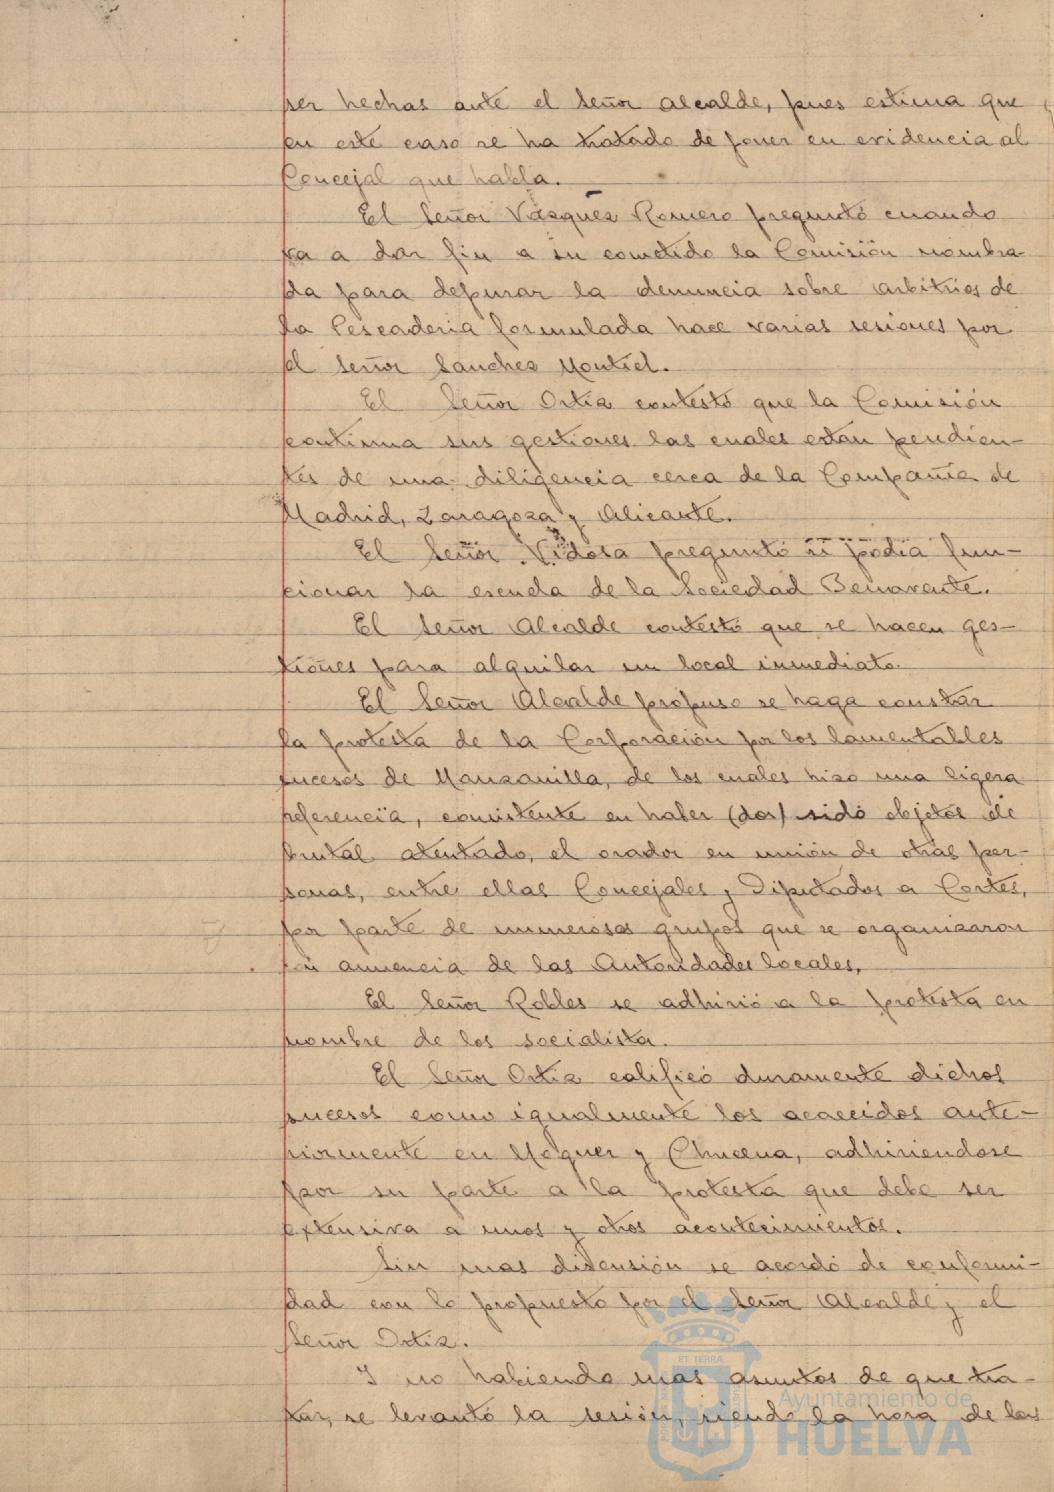 ser hechas ante el Señor Alcalde, pues estima que
en este caso se ha tratado de poner en evidencia al
Concejal que habla.
El Señor Vásquez Romero preguntó cuando
va a dar fin a su cometido la Comisión nombra-
da para depurar la denuncia sobre arbitrios de
la Pescaderia formulada hace varias sesiones por
el Señor Sanchez Montiel.
El Señor Ortiz contestó que la Comisión
continua sus gestiones las cuales estan pendien-
tes de una diligencia cerca de la Compañia de
Madrid, Zaragoza y Alicante.
El Señor Vidosa preguntó si podia fun-
cionar la escuela de la Sociedad Benavente.
El Señor Alcalde contestó que se hacen ges-
tiones para alquilar un local inmediato.
El Señor Alcalde propuso se haga constar
la protesta de la Corporación por los lamentables
sucesos de Manzanilla, de los cuales hizo una ligera
referencia, consistente en haber (dos) sido objetos de
brutal atentado, el orador en unión de otras per-
sonas, entre ellas Concejales y Diputados a Cortes,
por parte de numerosos grupos que se organizaron
con anuencia de las Autoridades locales.
El Señor Robles se adhirió a la protesta en
nombre de los socialista.
El Señor Ortiz calificó duramente dichos
sucesos como igualmente los acaecidos ante-
riormente en Moguer y Chucena, adhiriendose
por su parte a la protesta que debe ser
extensiva a unos y otros acontecimientos.
Sin mas discusión se acordó de conformi-
dad con lo propuesto por el Señor Alcalde y el
Señor Ortiz.
Y no habiendo mas asuntos de que tra-
tar, se levantó la sesión, siendo la hora de las
Ayuntamiento de
HUELVA